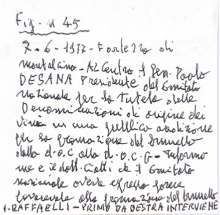 Fig. n 45
7-6-1972 - Fontezzo di
montalcino - Al Centro il Sen. Paolo
DESANA Presidente del Comitato
nazionale per la Tutela delle
Denominazioni di origine dei
vini in una pubblica audizione
per la promozione del Brunello
dalla d.o.c alla d.o.c.g -
me e il dott. Ciatti che il Comitato
nazionale aveva espresso parere
alla promozione del Brunello
I. RAFFAELLI - PRIMO DA DESTRA INTERVIENE